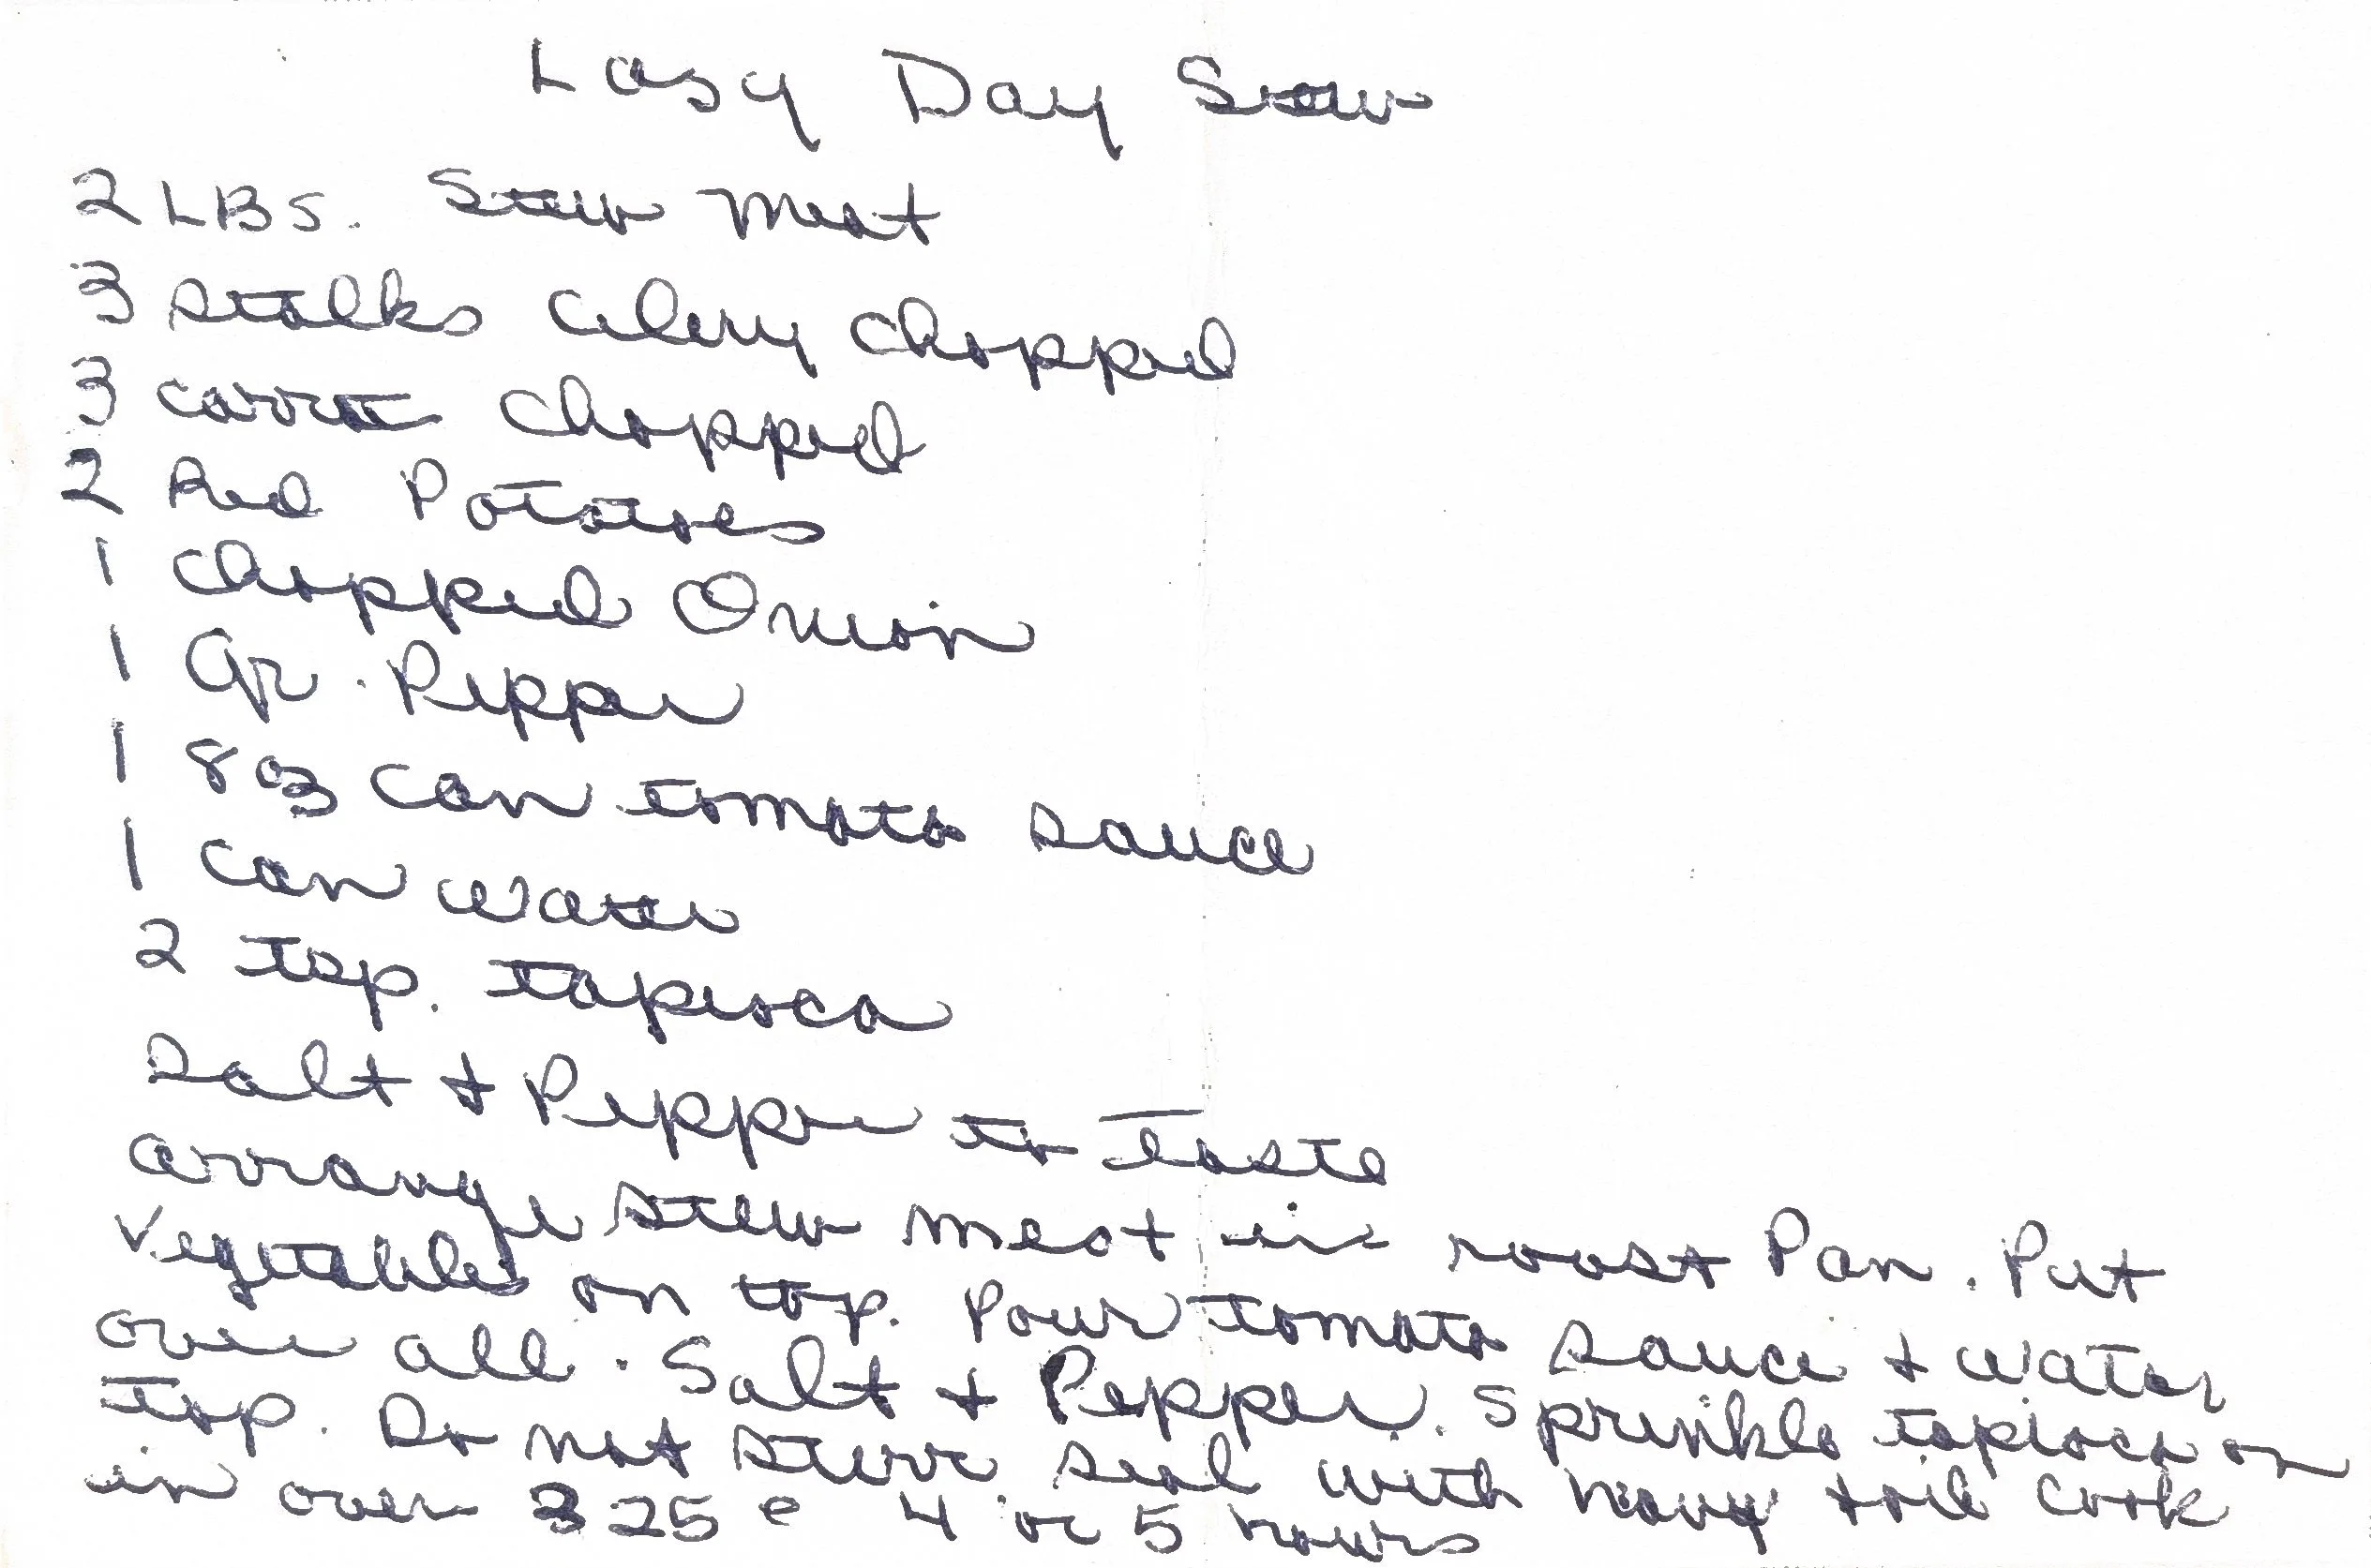 Lasy Day Stew
2 LBS. Stew meat
3 stalks Celery Chopped
3 carrots Chopped
2 Red Potatoes
1 Chopped Onion
1 Gr. Pepper
1 8 oz can tomato sauce
1 can water
2 tsp. tapioca
Salt + Pepper to Taste
arrange stew meat in roast Pan. Put
Vegetables on top. Pour tomato sauce + water
over all. Salt + Pepper. Sprinkle tapioca on
top. Do not stirr. Seal with heavy foil Cook
in oven 325° 4 or 5 hours